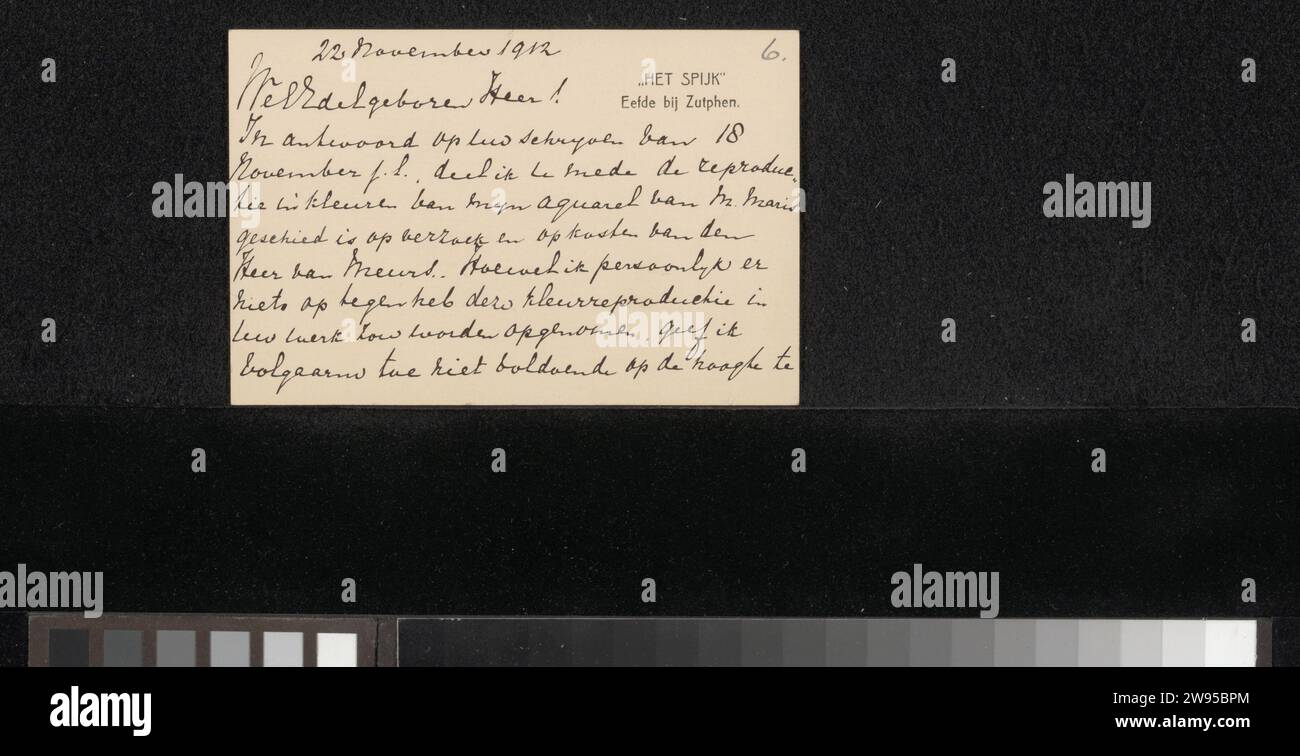 22 November 1912
6.
„HET SPIJK"
Eefde bij Zutphen.
WelEdelgeboren Heer!
In antwoord op Uw schrijven van 18
November j.l., deel ik te mede de reproduc-
tie in kleuren van mijn aquarel van M. Maris
geschied is op verzoek en op kosten van den
Heer van Meurs. Hoewel ik persoonlijk er
niets op tegen heb deze kleurreproductie in
Uw werk zou worden opgenomen, geef ik
volgaarne toe niet voldoende op de hoogte te
alamy
Image ID: 2W95BPM
www.alamy.com